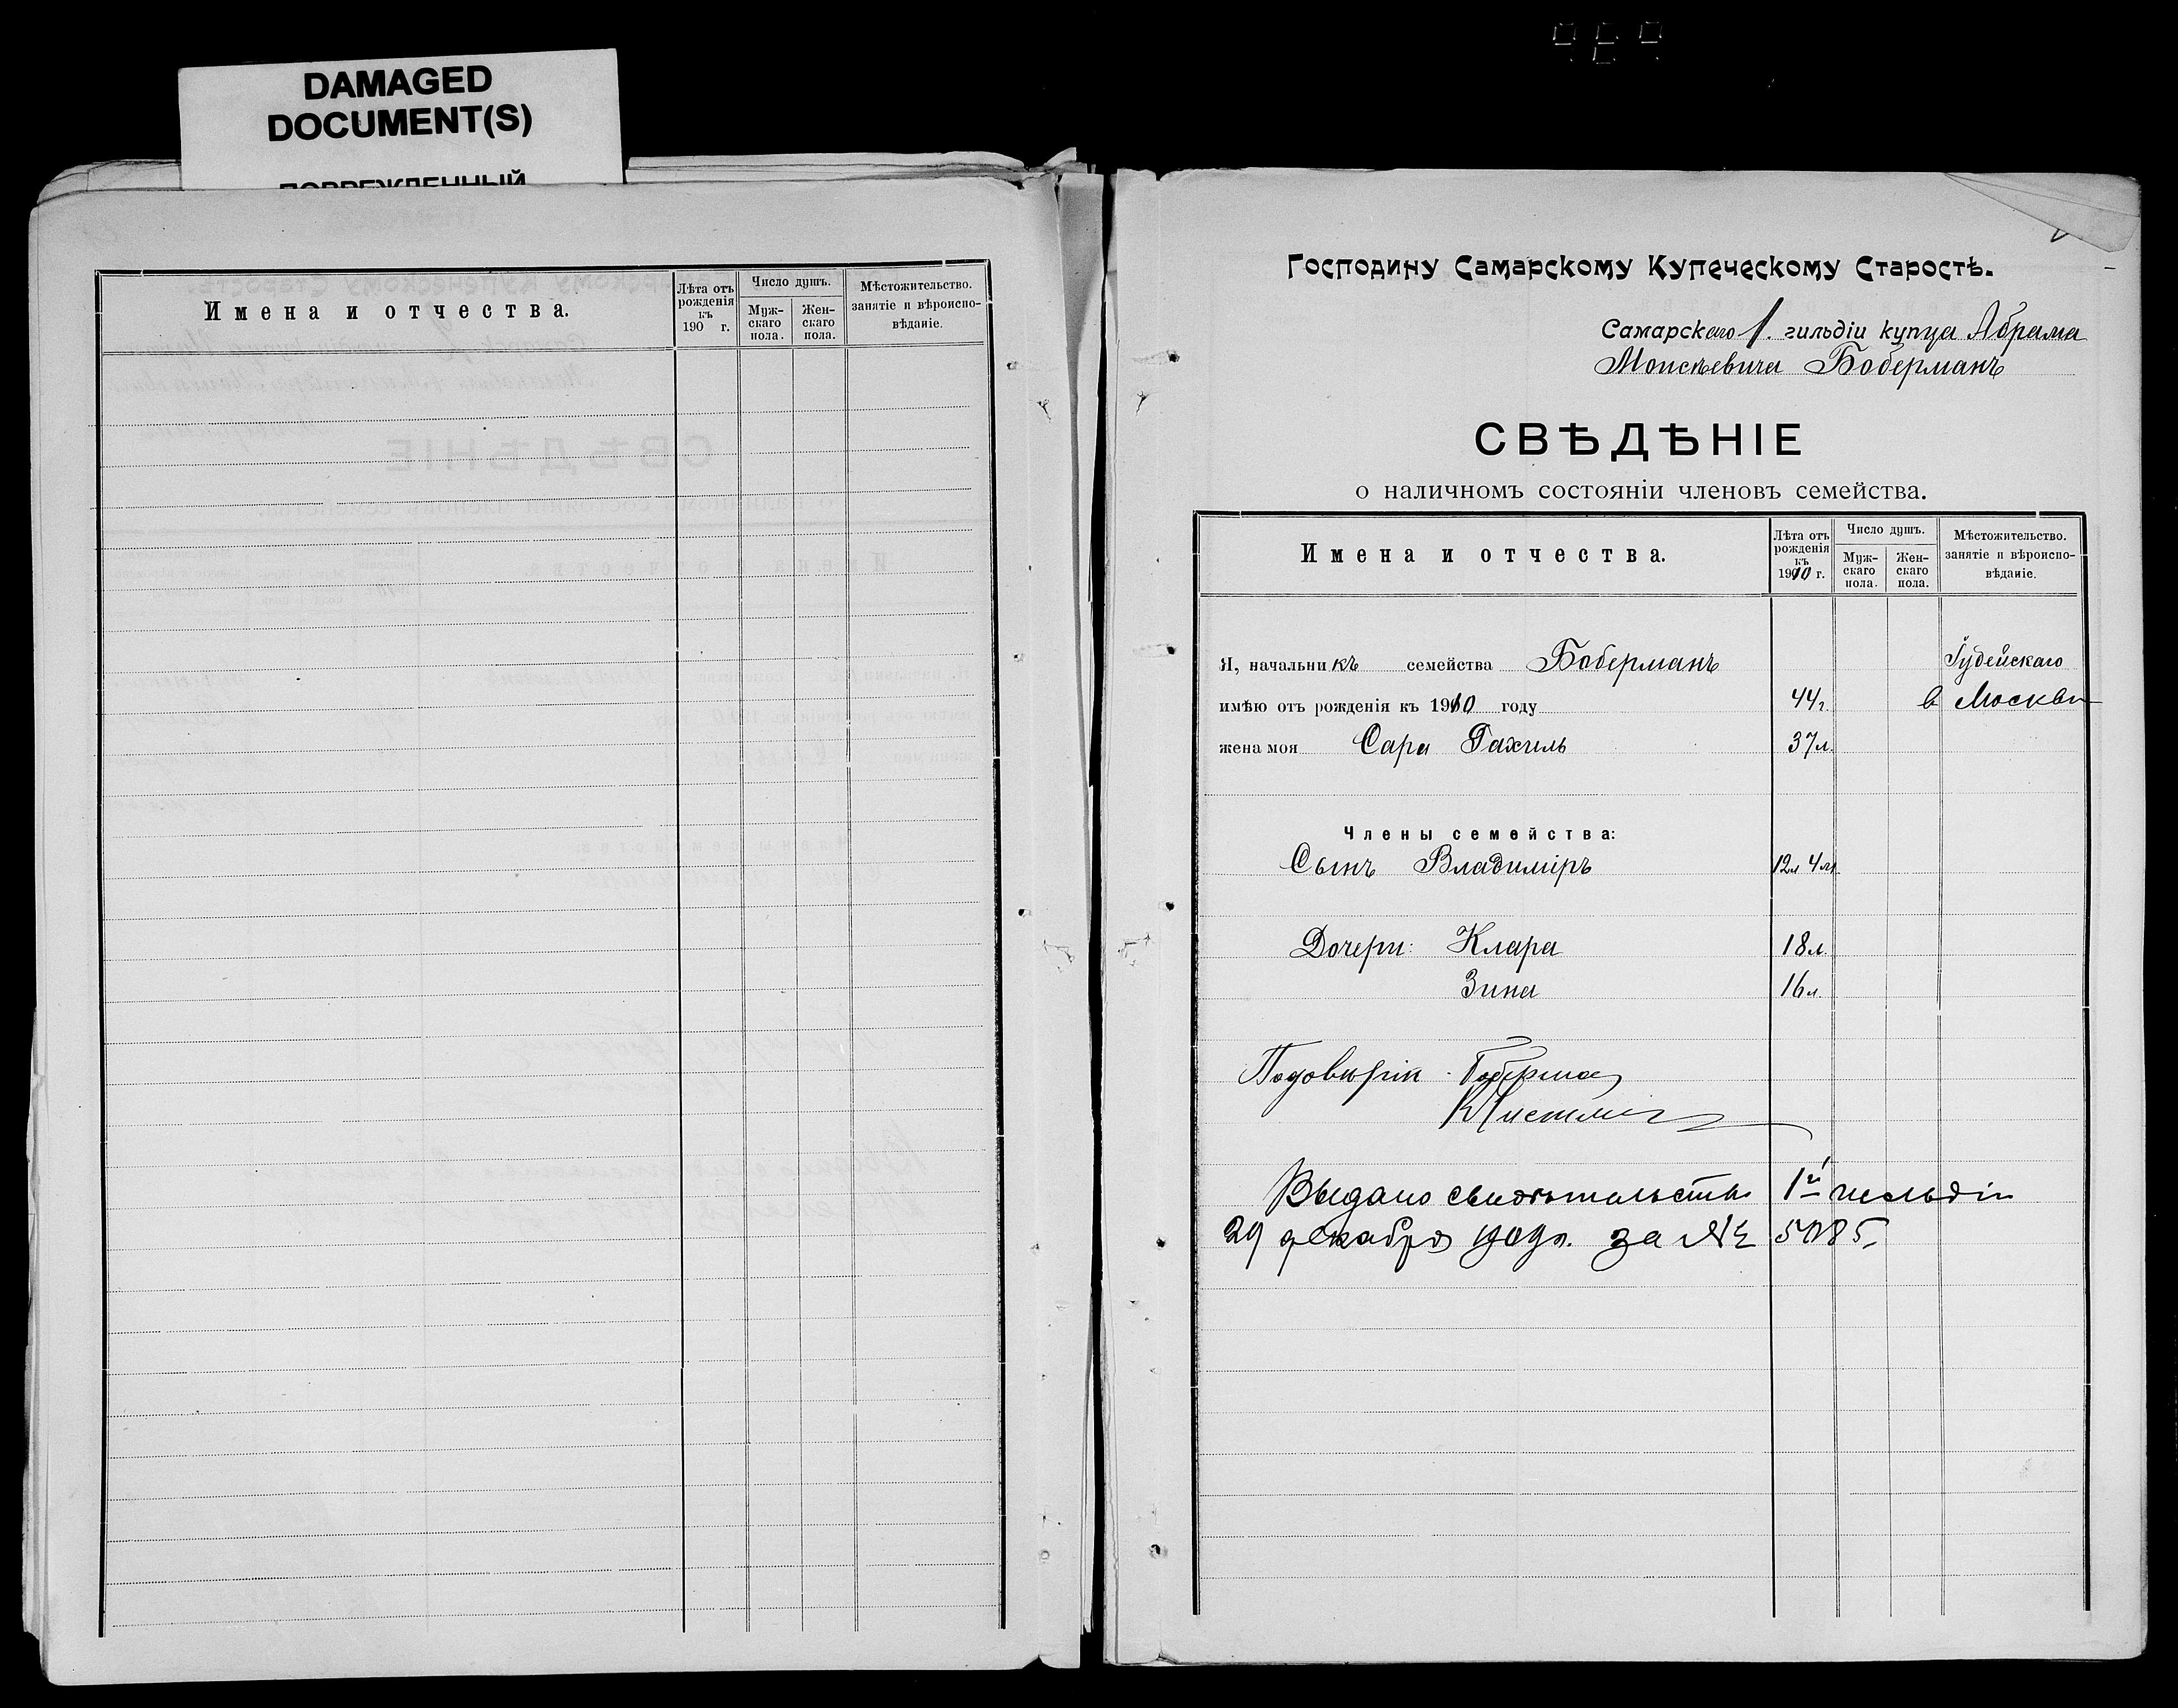 DAMAGED
DOCUMENT(S)
ПОВРЕЖДЕННЫЙ
Имена и отчества.
Лѣта отъ рожденія къ 190 г.
Число душъ.
Муж-скаго пола.
Жен-скаго пола.
Мѣстожительство.
занятіе и вѣроиспо-
вѣданіе.
Господину Самарскому Купеческому Старостѣ.
Самарскаго 1. гильдіи купца Абрама
Моисѣевича Боберманъ
СВѢДѢНІЕ
о наличномъ состояніи членовъ семейства.
Имена и отчества.
Лѣта отъ рожденія къ 1910 г.
Число душъ.
Муж-скаго пола.
Жен-скаго пола.
Мѣстожительство.
занятіе и вѣроиспо-
вѣданіе.
Я, начальникъ семейства Боберманъ Іудейскаго
имѣю отъ рожденія къ 1910 году 44г. в Москвѣ
жена моя Сара Рахиль 37л.
Члены семейства:
Сынъ Владиміръ 12л 4м.
Дочери: Клара 18л.
Зина 16л.
Выдано свидѣтельство 1й гильдіи
29 декабря 1909г. за № 5085.